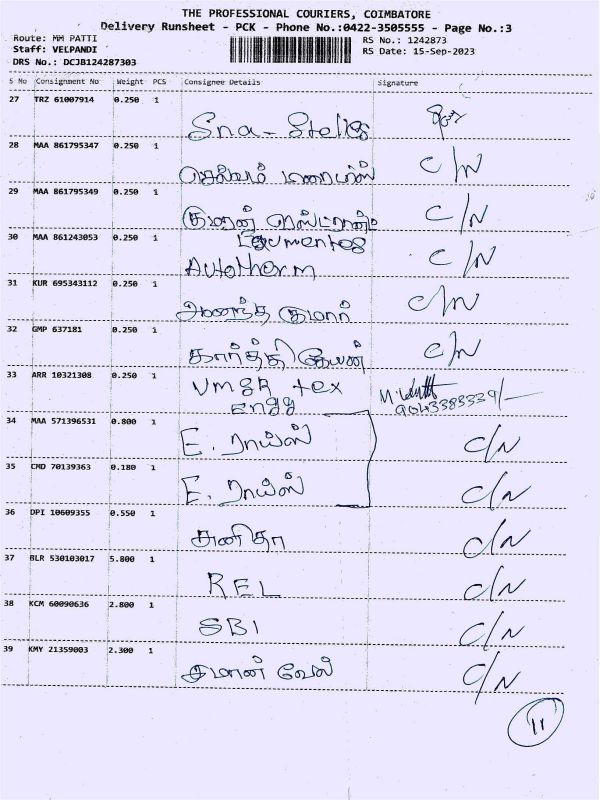 THE PROFESSIONAL COURIERS, COIMBATORE
Delivery Runsheet - PCK - Phone No.:0422-3505555 - Page No.:3
Route: MM PATTI
RS No.: 1242873
Staff: VELPANDI
RS Date: 15-Sep-2023
DRS No.: DCJB124287303
S No Consignment No Weight PCS Consignee Details Signature
27 TRZ 61007914 0.250 1
28 MAA 861795347 0.250 1 C/N
29 MAA 861795349 0.250 1 குமரன் C/N
30 MAA 861243053 0.250 1 Autotherm C/N
31 KUR 695343112 0.250 1 ஆனந்த குமார் C/N
32 GMP 637181 0.250 1 கார்த்திகேயன் C/N
33 ARR 10321308 0.250 1 VMGR tex
Engg
34 MAA 571396531 0.800 1 E. ராய்ஸ் C/N
35 CMD 70139363 0.180 1 E. ராய்ஸ் C/N
36 DPI 10609355 0.550 1 அனிதா C/N
37 BLR 530103017 5.800 1 REL C/N
38 KCM 60090636 2.800 1 SBI C/N
39 KMY 21359003 2.300 1 வேல் C/N
11